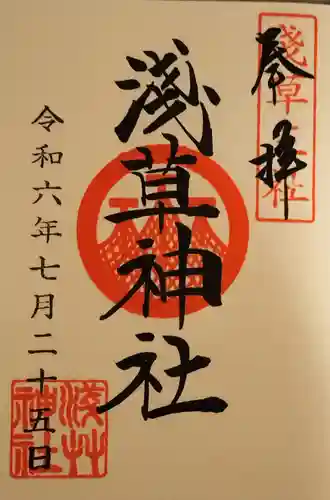 奉拝
淺草神社
淺草神社
令和六年七月二十五日
淺草神社